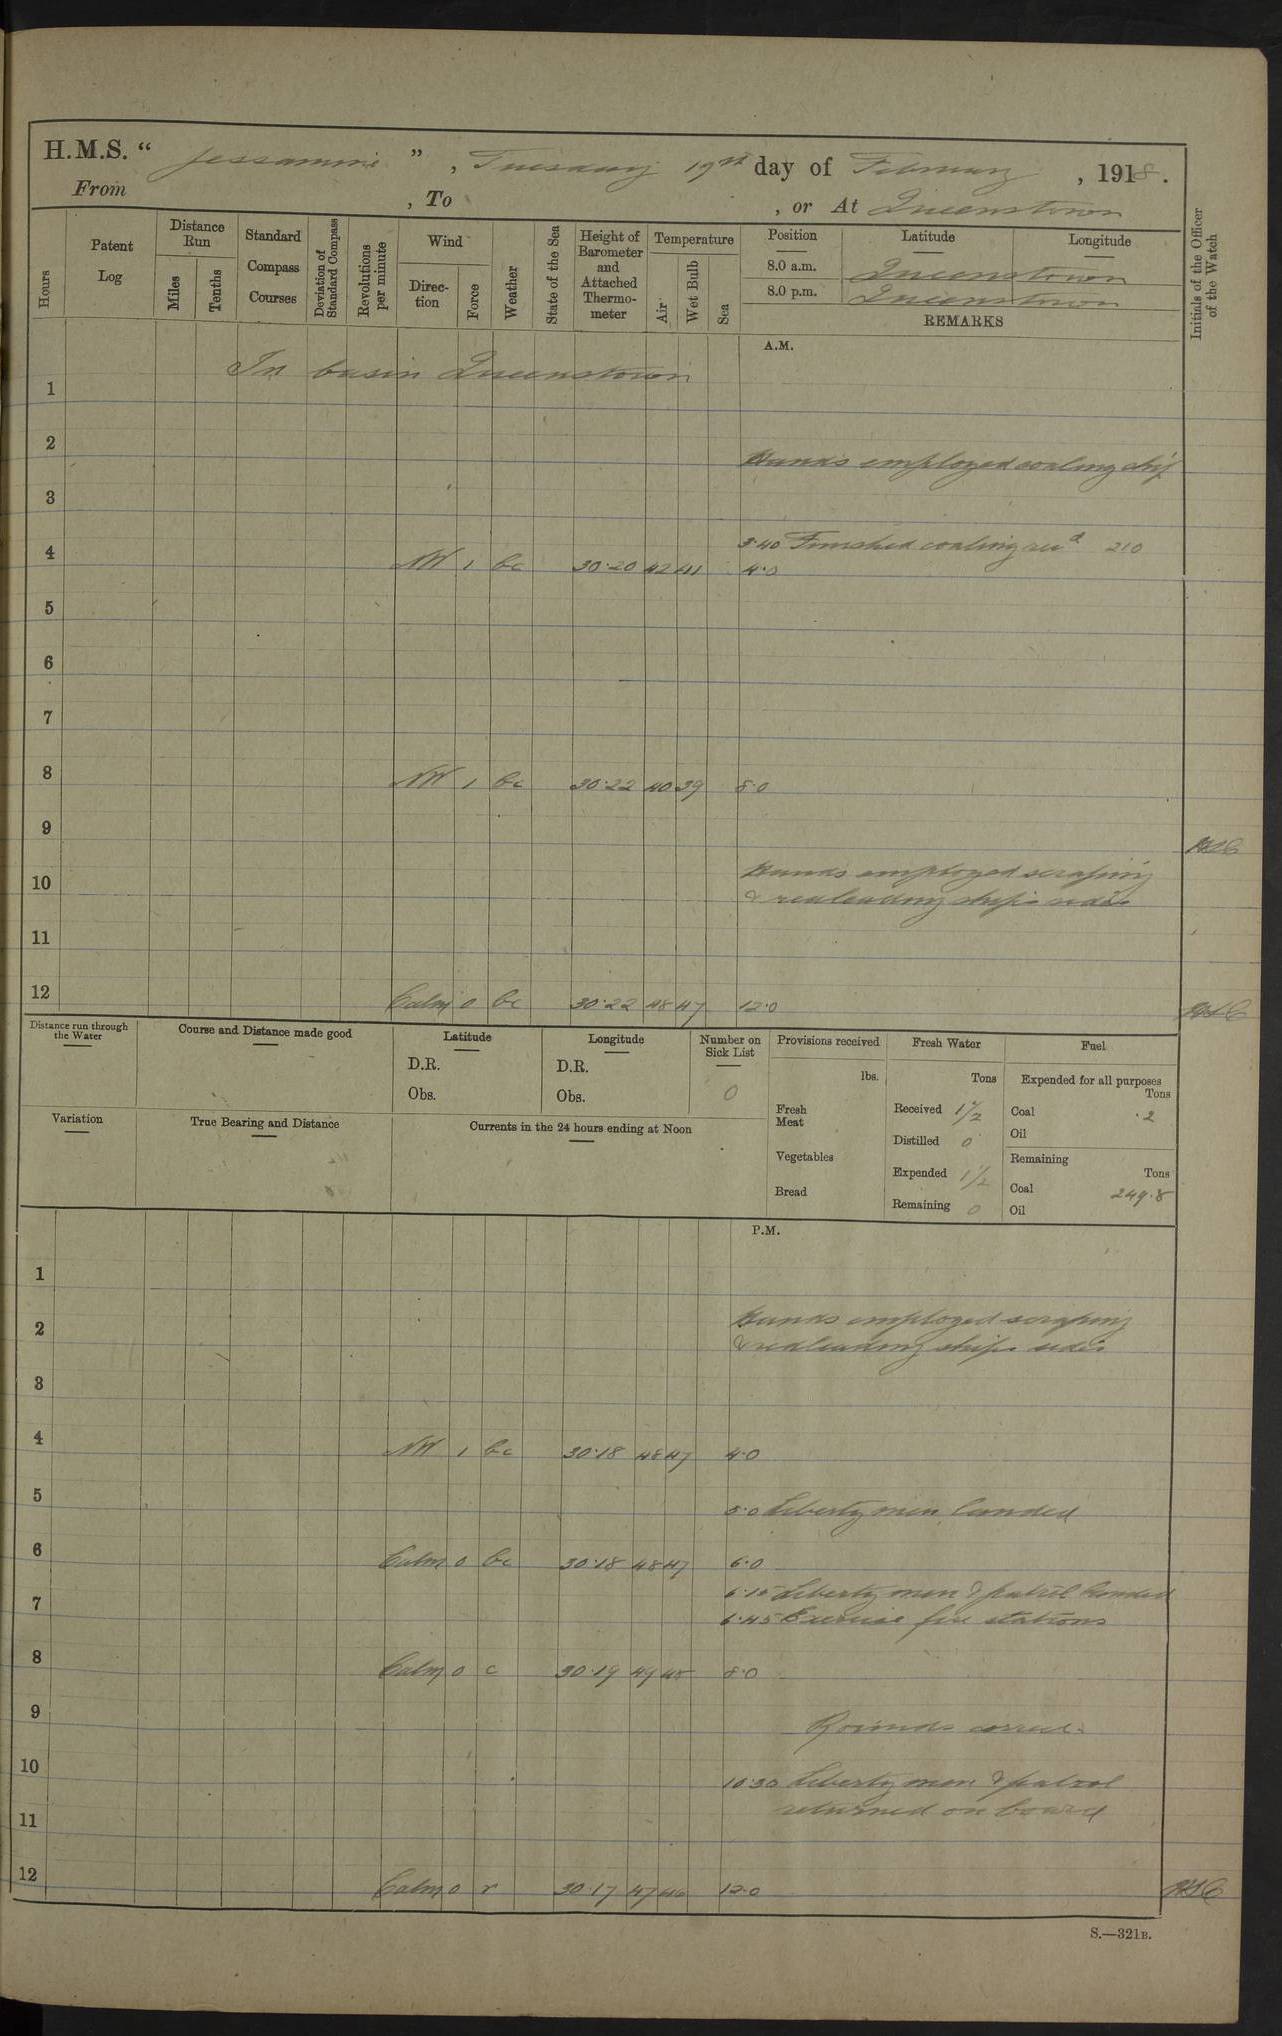 H.M.S. “ Jessamine ” , Tuesday 19th day of February , 1918.
From , To , or At Queenstown
Hours
Patent Log
Distance Run
Miles
Tenths
Standard Compass Courses
Deviation of Standard Compass
Revolutions per minute
Wind
Direction
Force
Weather
State of the Sea
Height of Barometer and Attached Thermometer
Temperature
Air
Wet Bulb
Sea
Position Latitude Longitude
8.0 a.m. Queenstown
8.0 p.m. Queenstown
REMARKS
Initials of the Officer of the Watch
A.M.
In basin Queenstown
1
2
Hands employed coaling ship
3
3.40 Finished coaling recd 210
4 NW 1 bc 30.20 42 41 4.0
5
6
7
8 NW 1 bc 30.22 40 39 8.0
9
Hands employed scraping
10
& redleading ship's sides
11
12 Calm 0 bc 30.22 48 47 12.0
Distance run through the Water
Course and Distance made good
Latitude
D.R.
Obs.
Longitude
D.R.
Obs.
Number on Sick List
0
Variation
True Bearing and Distance
Currents in the 24 hours ending at Noon
Provisions received
lbs.
Fresh Meat
Vegetables
Bread
Fresh Water
Tons
Received 1½
Distilled 0
Expended 1½
Remaining 0
Fuel
Expended for all purposes
Tons
Coal .2
Oil
Remaining
Tons
Coal 249.8
Oil
P.M.
1
Hands employed scraping
2
& redleading ship's sides
3
4 NW 1 bc 30.18 48 47 4.0
5
5.0 Liberty men landed
6 Calm 0 bc 30.18 48 47 6.0
6.15 Liberty men & patrol landed
7
6.45 Exercise fire stations
8 Calm 0 c 30.19 49 48 8.0
9
Rounds correct
10
10.30 Liberty men & patrol
returned on board
11
12 Calm 0 r 30.17 47 46 12.0
S.—321B.